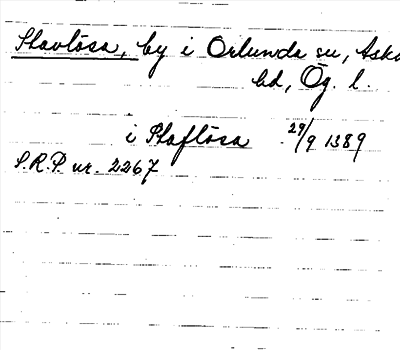 Stavlösa, by i Orlunda sn, Aska
hd, Ög. l.
i Staflösa 29/9 1389
S.R.P. nr. 2267